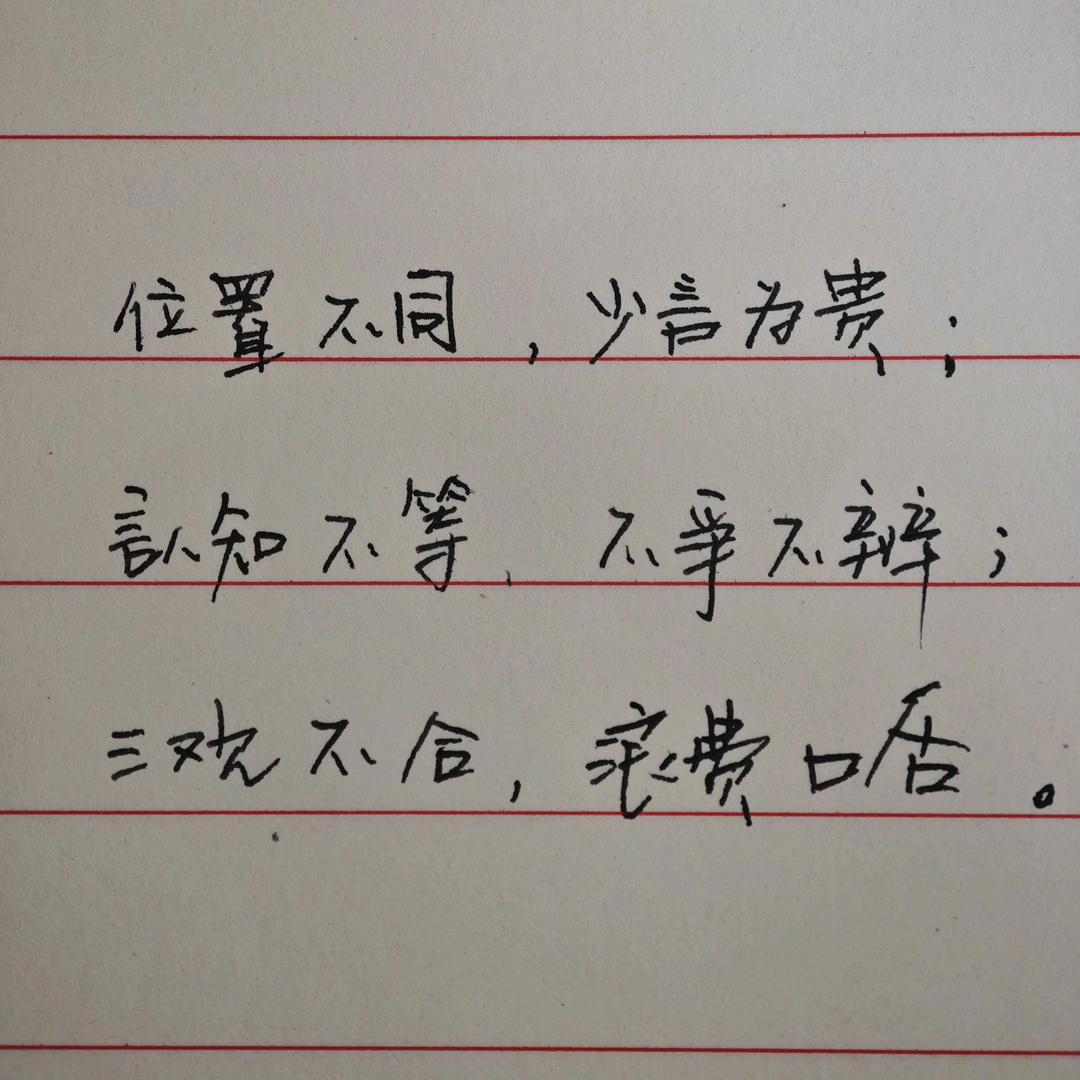 位置不同，少言为贵；
認知不等，不爭不辩；
三观不合，浪费口舌。